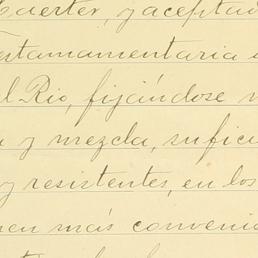 Caerter, y aceptad
Testamamentaria
el Rio, fijándose
y mezcla, sufici
y resistentes, en los
nen más convenie